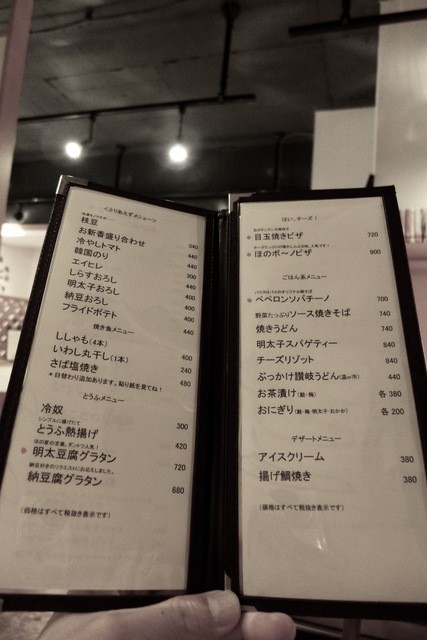 <とりあえずメニュー>
枝豆
お新香盛り合わせ 340
冷やしトマト 440
韓国のり
エイヒレ 440
しらすおろし 300
明太子おろし 440
納豆おろし 440
フライドポテト 440
焼き魚メニュー
ししゃも(4本) 400
いわし丸干し(1本) 240
さば塩焼き 480
＊日替わり追加あります。貼り紙を見てね！
とうふメニュー
冷奴 300
シンプルに揚げたて
とうふ熱揚げ 420
ほの家の定番。ダントツ人気！
明太豆腐グラタン 720
納豆好きのリクエストにお応えしました。
納豆腐グラタン 680
(価格はすべて税抜き表示です)
はい、チーズ！
目玉焼きピザ 720
ほのボ〜ノピザ 900
ごはん系メニュー
ペペロンソバチーノ 700
野菜たっぷりソース焼きそば 740
焼きうどん 740
明太子スパゲティー 840
チーズリゾット 840
ぶっかけ讃岐うどん(温or冷) 440
お茶漬け(鮭・梅) 各 380
おにぎり(鮭・梅・明太子・おかか) 各 200
デザートメニュー
アイスクリーム 380
揚げ鯛焼き 380
(価格はすべて税抜き表示です)